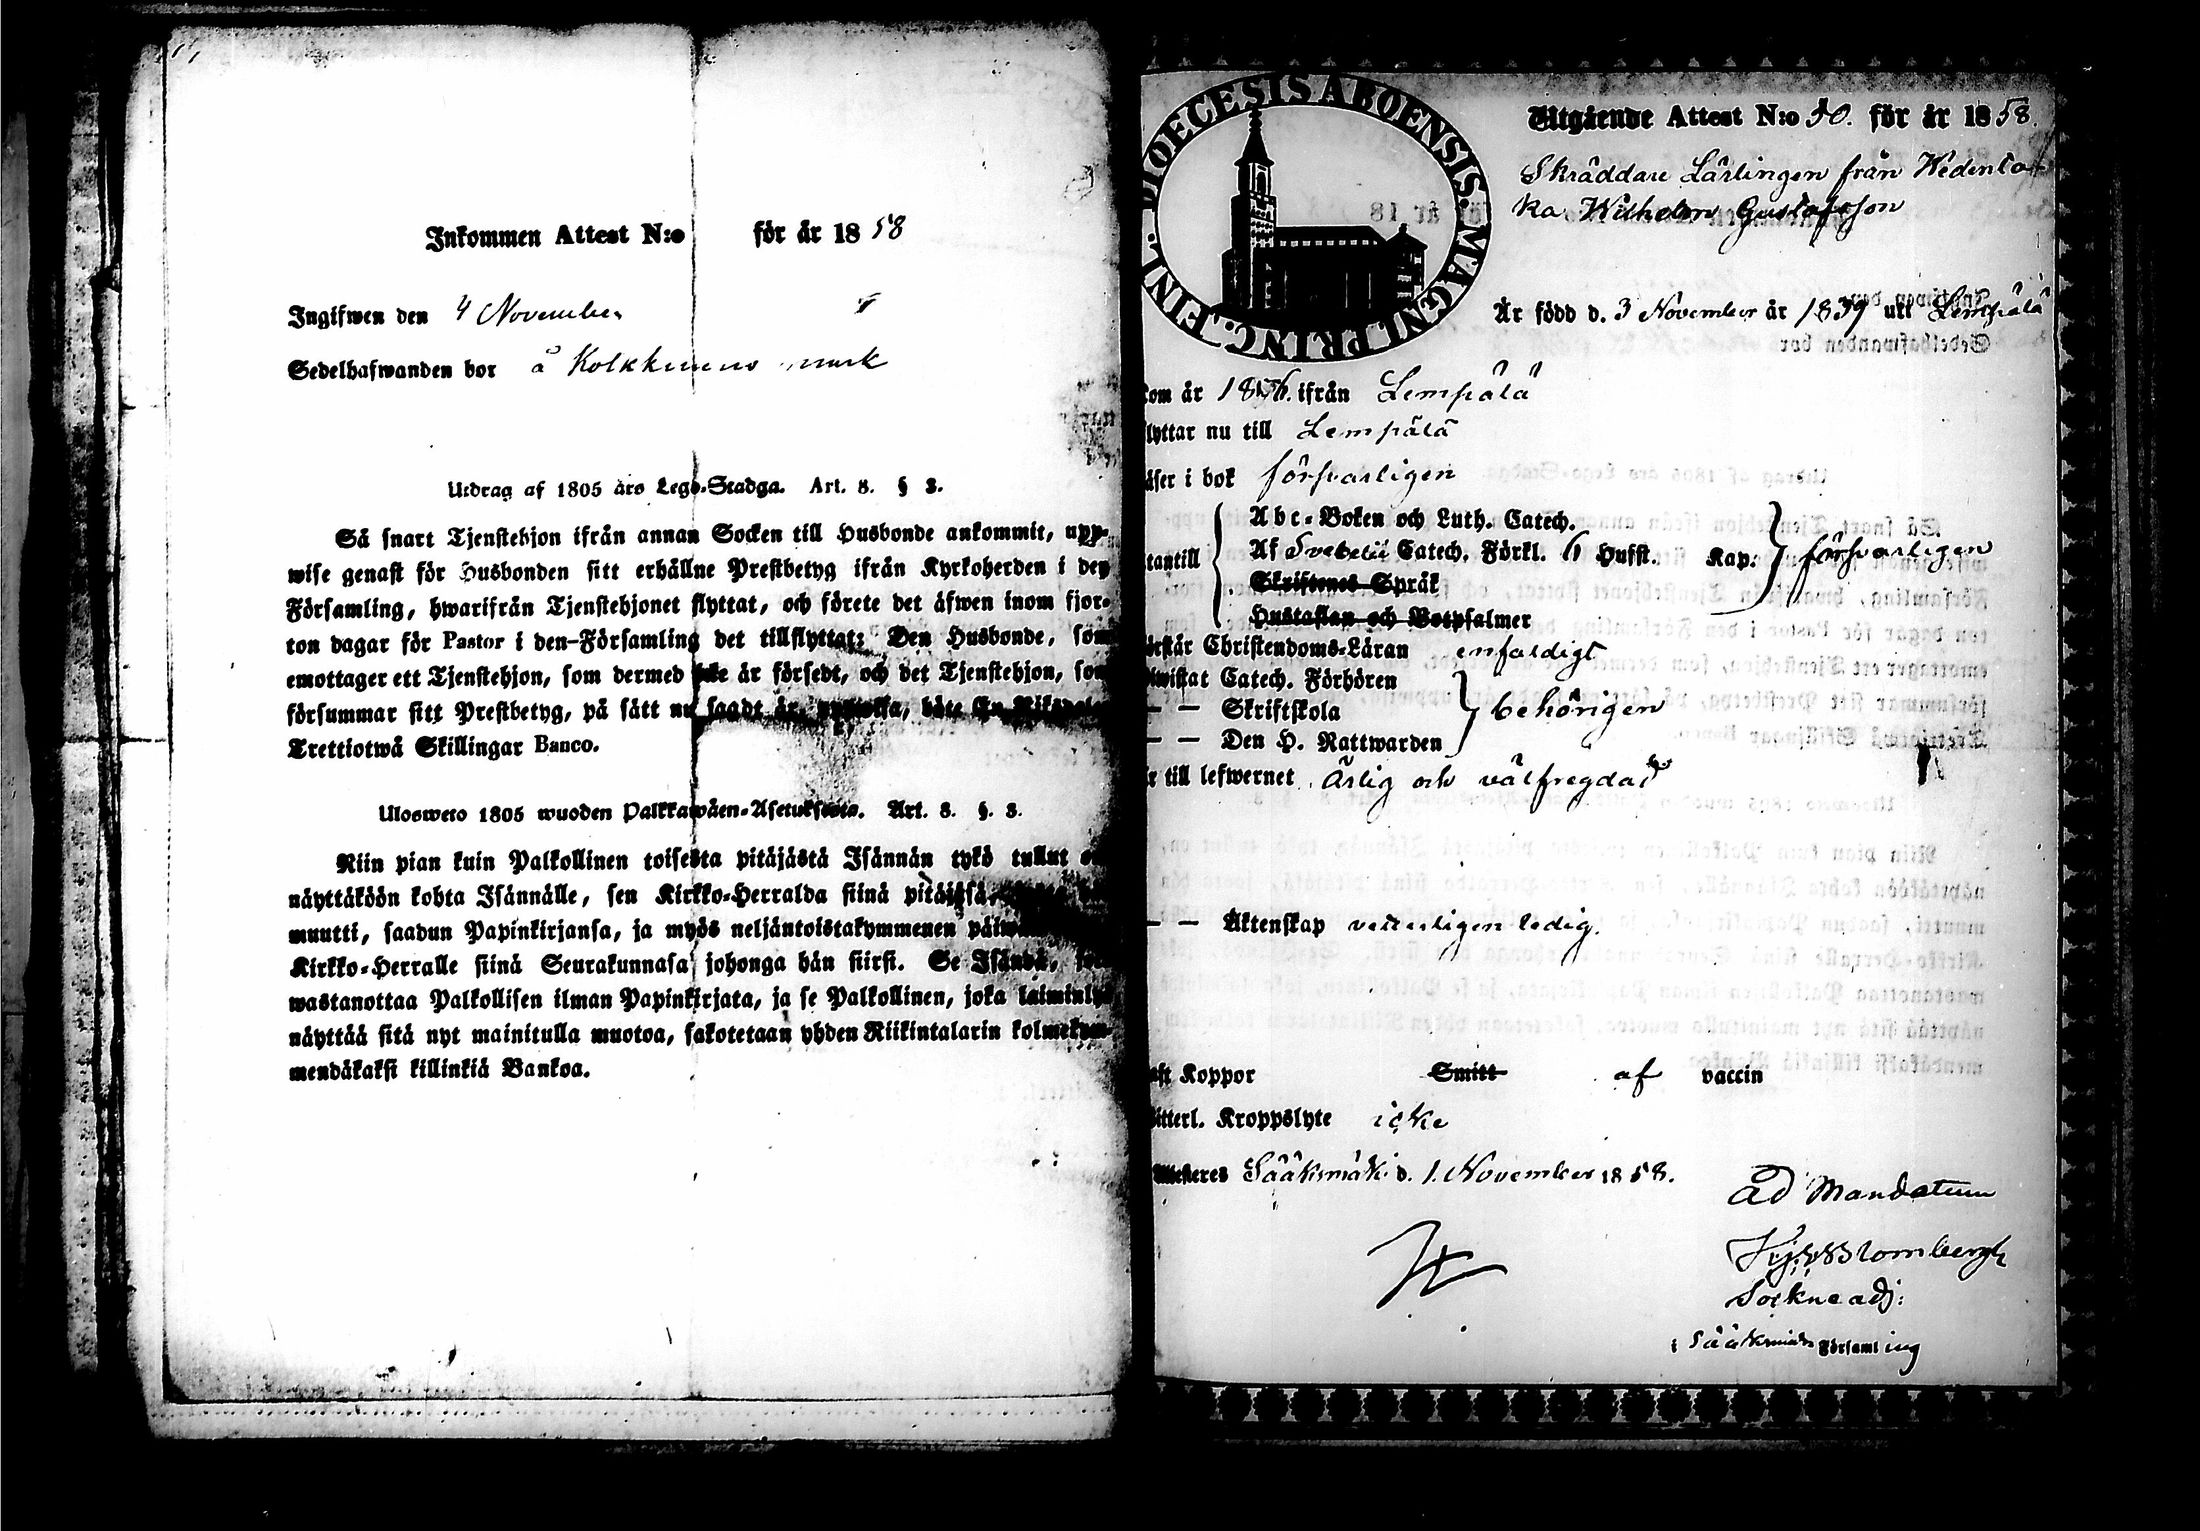 Inkommen Attest N:o för år 1858
Ingifwen den 4 November
Sedelhafwanden bor å Kolkkinens mark
Utdrag af 1805 års Lego-Stadga. Art. 8. § 3.
Så snart Tjenstehjon ifrån annan Socken till Husbonde ankommit, upp-
wise genast för Husbonden sitt erhållne Prestbetyg ifrån Kyrkoherden i den
Församling, hwarifrån Tjenstehjonet flyttat, och förete det äfwen inom fjor-
ton dagar för Pastor i den Församling det tillflyttat: Den Husbonde, som
emottager ett Tjenstehjon, som dermed icke är försedt, och det Tjenstehjon, som
försummar sitt Prestbetyg, på sätt nu sagdt är, uppwisa, böte En Riksdaler
Trettiotwå Skillingar Banco.
Ulosweto 1805 wuoden Palkkawäen-Asetuksesta. Art. 8. §. 3.
Niin pian kuin Palkollinen toisesta pitäjästä Isännän tykö tullut on
näyttäköön kohta Isännälle, sen Kirkko-Herralda siinä pitäjäsä,
muutti, saadun Papinkirjansa, ja myös neljäntoistakymmenen päiwän
Kirkko-Herralle siinä Seurakunnasa johonga hän siirsi. Se Isändä, joka
wastanottaa Palkollisen ilman Papinkirjata, ja se Palkollinen, joka laiminlyö
näyttää sitä nyt mainitulla muotoa, sakotetaan yhden Riikintalarin kolmekym-
mendäkaksi killinkiä Bankoa.
DIOECESIS ABOENSIS. MAGNI PRINC. FINL.
Utgående Attest N:o 50. för år 1858.
Skräddare Lärlingen från Wedenta-
ka Wilhelm Gustafsson
Är född d. 3 November år 1839 uti Lempälä
kom år 1856. ifrån Lempälä
flyttar nu till Lempälä
läser i bok försvarligen
utantill Abc-Boken och Luth. Catech.
Af Svebelii Catech. Förkl. 6 Hufst. Kap. försvarligen
Skriftenes Språk
Hustaflan och Botpsalmer
förstår Christendoms-Läran enfaldigt
biwistat Catech. Förhören
— — Skriftskola behörigen
— — Den H. Nattwarden
är till lefwernet ärlig och välfregdad
— — Äktenskap veterligen ledig.
haft Koppor Smitt af vaccin
Witterl. Kroppslyte icke
Attesteres Sääksmäki d. 1. November 1858.
ad Mandatum
Blombergh
Sockne adj:
i Sääksmäki Församling